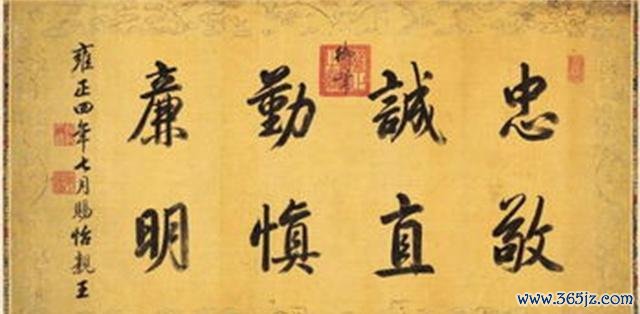 御筆
忠敬
誠直
勤慎
廉明
雍正四年七月賜怡親王
www.365jz.com